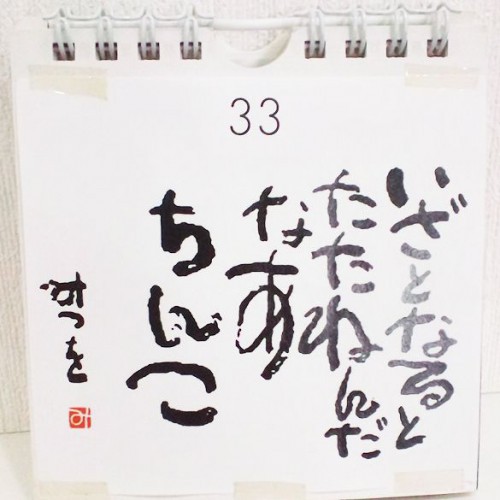 33
いざとなると
たたねんだ
なあ
ちんこ
みつを